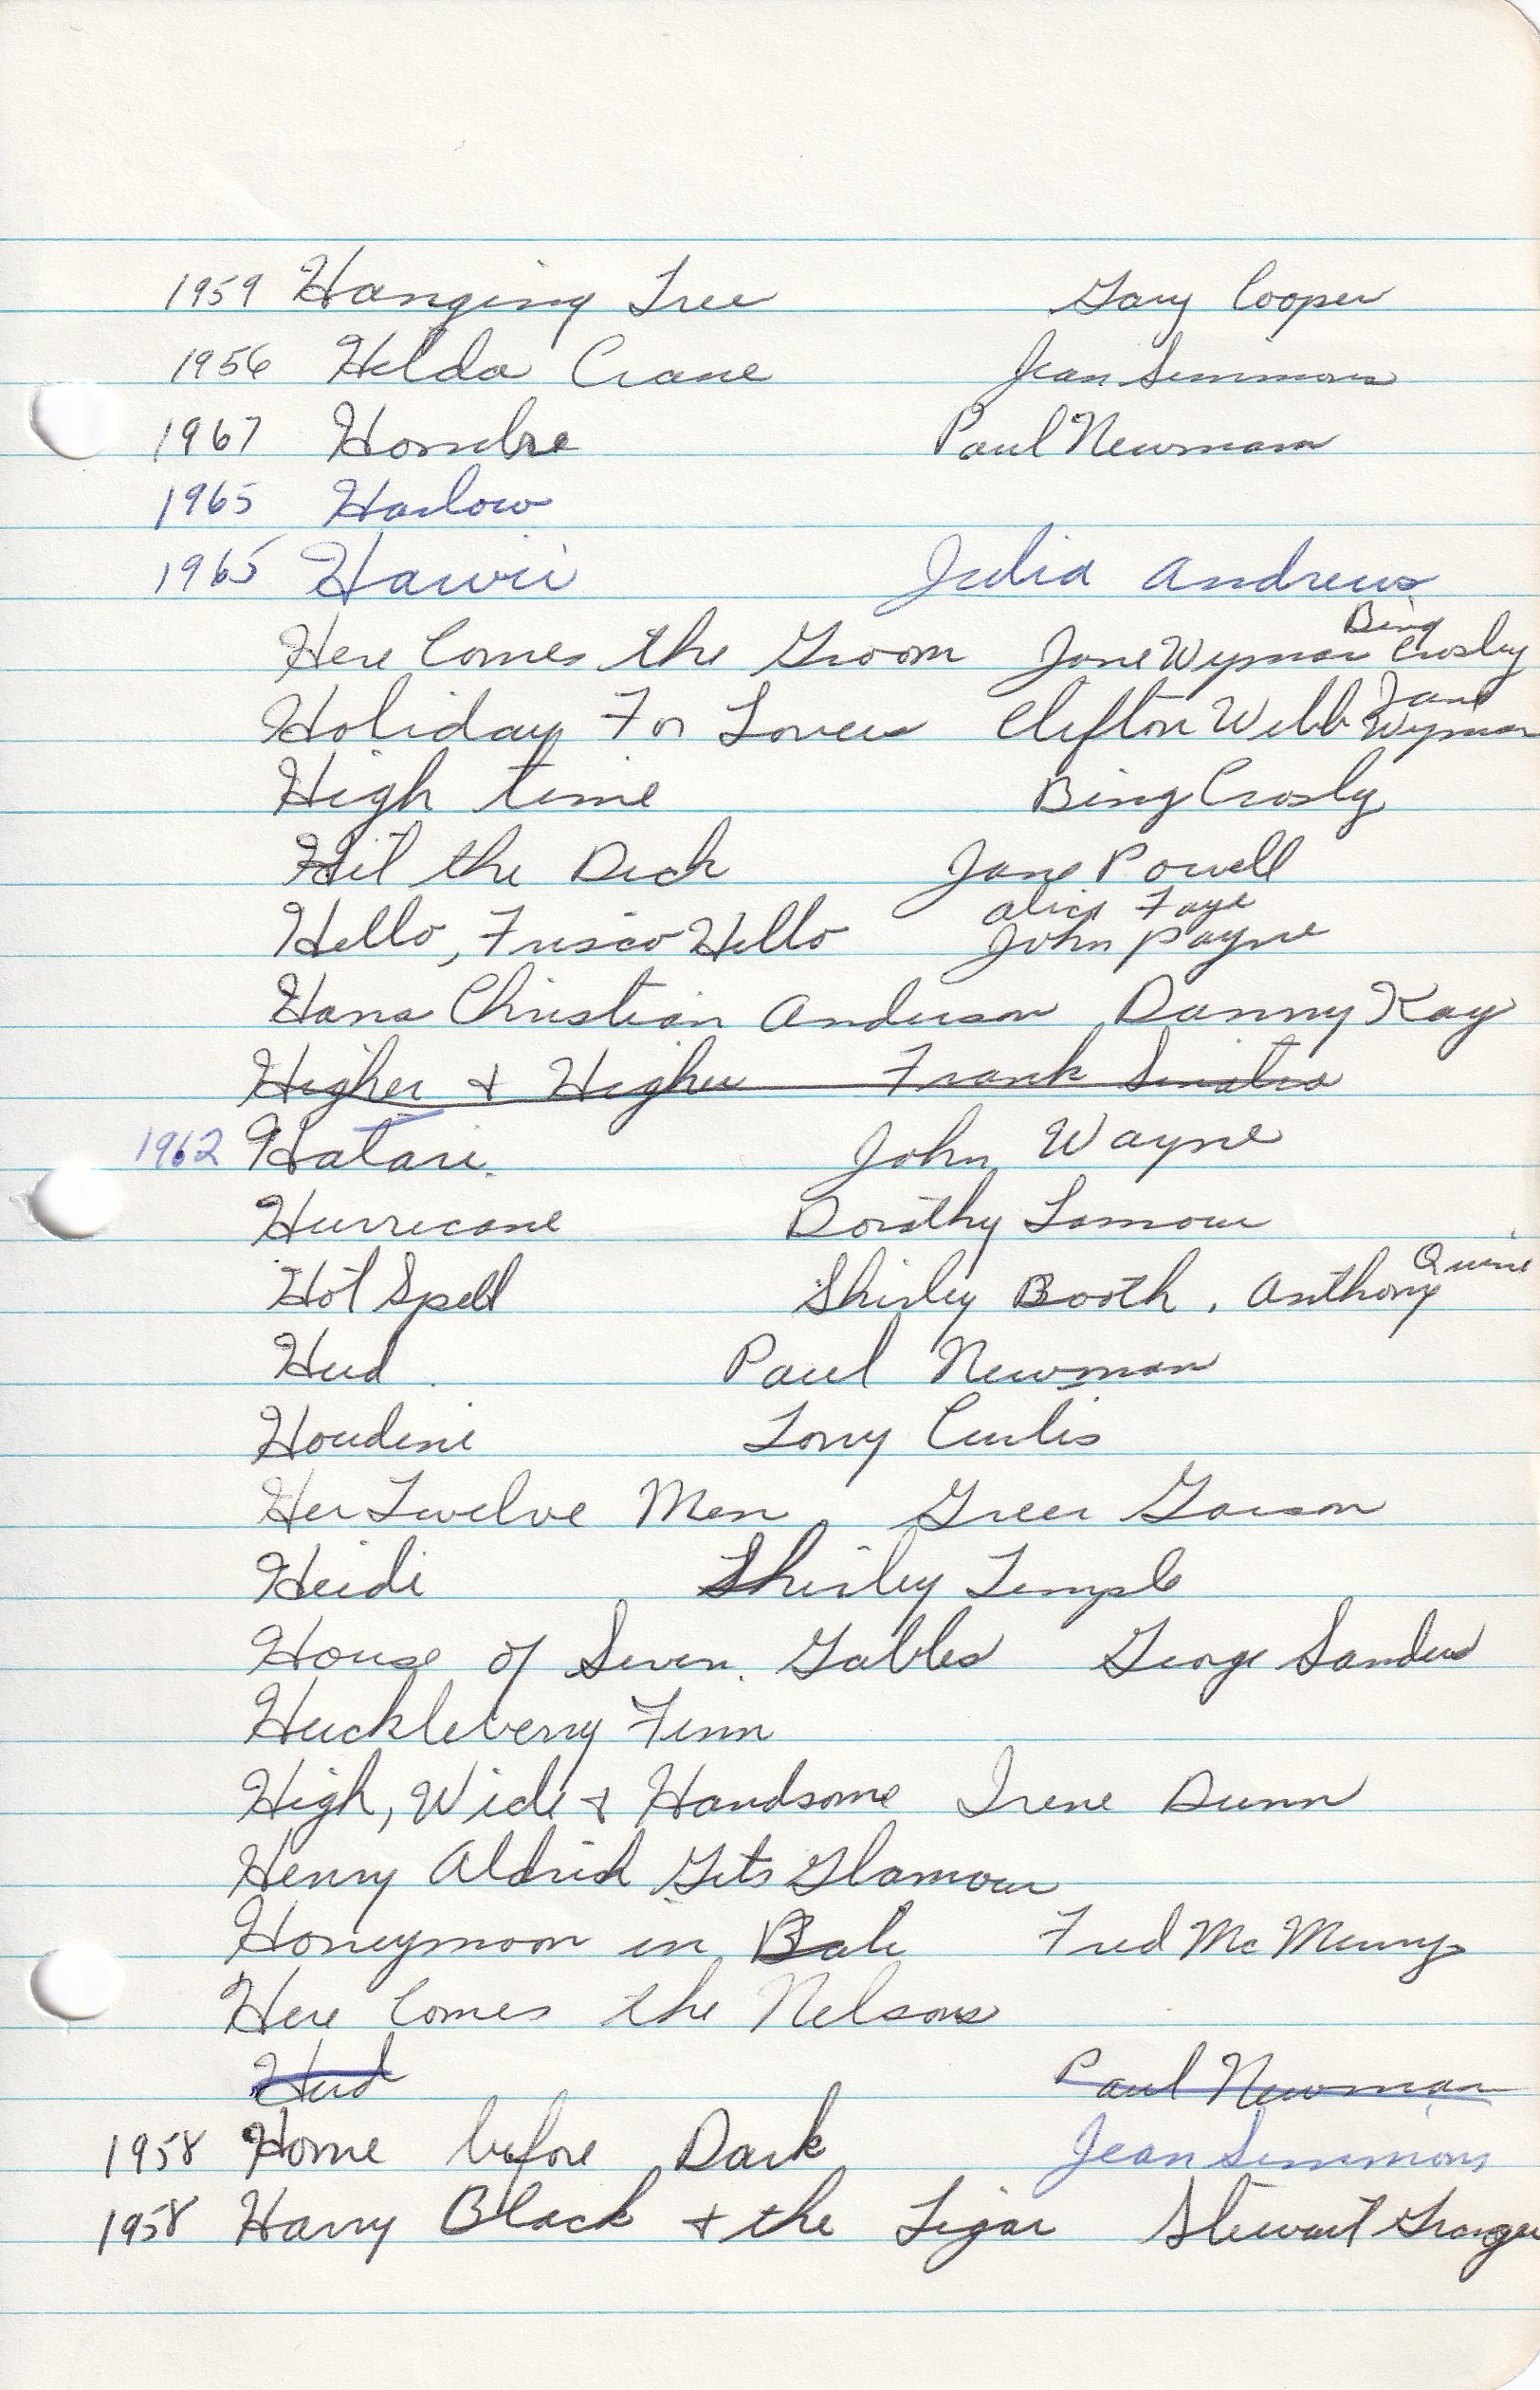 1959 Hanging Tree Gary Cooper
1956 Hilda Crane Jean Simmons
1967 Hombre Paul Newman
1965 Harlow
1965 Hawii Julia Andrews
Here Comes the Groom Jane Wyman Bing Crosby
Holiday For Lovers Clifton Webb Jane Wyman
High time Bing Crosby
Hit the Deck Jane Powell
Hello, Frisco Hello Alice Faye John Payne
Hans Christian Anderson Danny Kay
Higher & Higher Frank Sinatra
1962 Hatari. John Wayne
Hurricane Dorothy Lamour
Hot Spell Shirley Booth, Anthony Quinn
Hud. Paul Newman
Houdini Tony Curtis
Her Twelve Men Greer Garson
Heidi Shirley Temple
House of Seven Gables George Sanders
Huckleberry Finn
High, Wide & Handsome Irene Dunn
Henry Aldrich Gets Glamour
Honeymoon in Bali Fred McMurry
Here Comes the Nelsons
Hud Paul Newman
1958 Home before Dark Jean Simmons
1958 Harry Black & the Tigar Stewart Granger